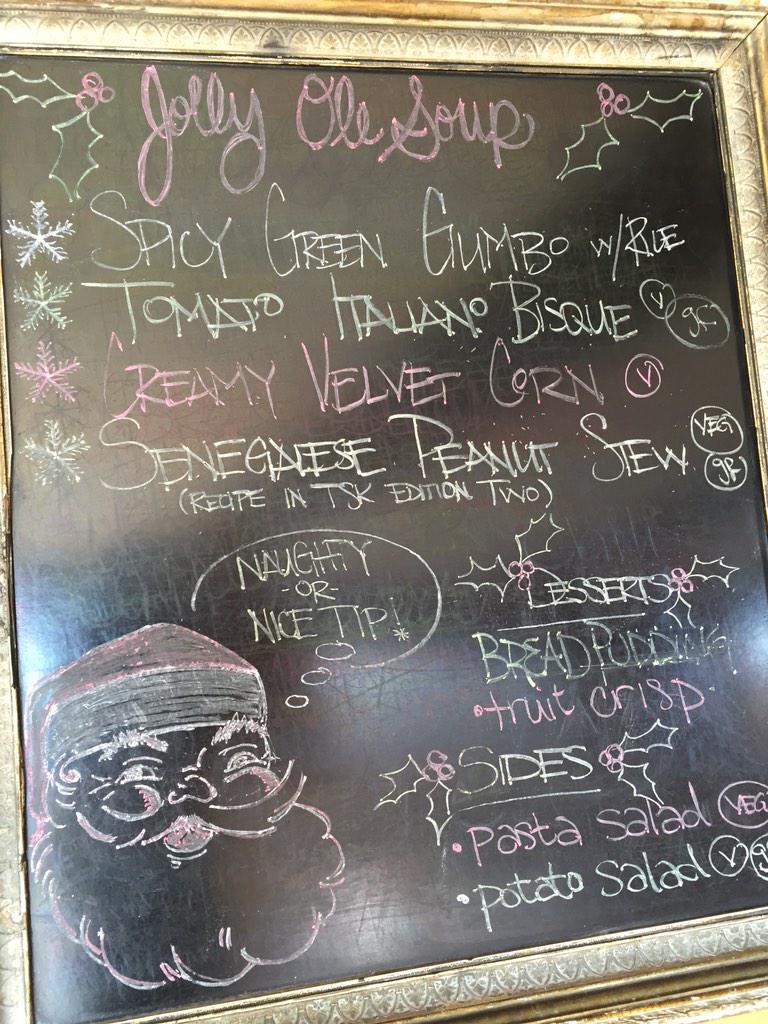 Jolly Ole Soup
SPICY GREEN GUMBO W/RICE
TOMATO ITALIANO BISQUE V gf
CREAMY VELVET CORN V
SENEGALESE PEANUT STEW VEG gf
(RECIPE IN TSK EDITION TWO)
NAUGHTY
-OR-
NICE TIP! *
DESSERTS
BREAD PUDDING
• fruit crisp
SIDES
• pasta salad VEG
• potato salad V